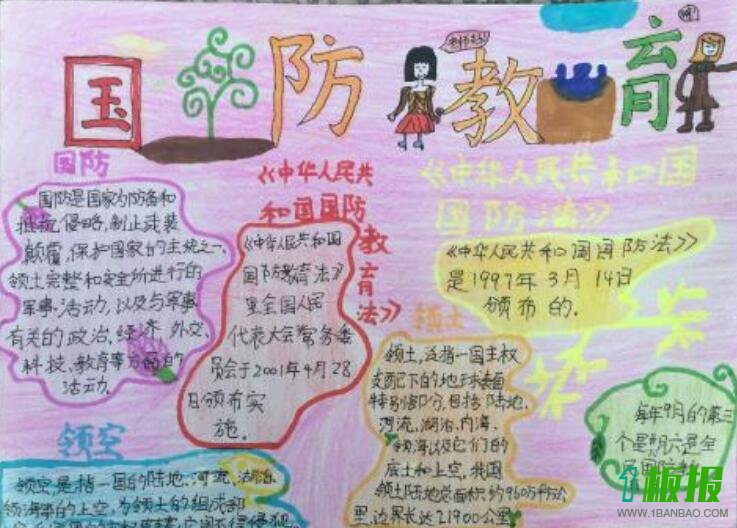 国防教育
老师好
哦!
国防
国防是国家为防备和
抵抗侵略,制止武装
颠覆,保护国家的主统之一
领土完整和安全所进行的
军事活动,以及与军事
有关的政治、经济、外交、
科技、教育等方面的
活动.
《中华人民共
和国国防
教育法》
《中华人民共和国
国防教育法》
里全国人民
代表大会常务委
员会于2001年4月28
日颁布实
施。
《中华人民共和国
国防法》
《中华人民共和国国防法》
是1997年3月14日
颁布的.
领土
领土,泛指一国主权
支配下的地球表面
特别部分,包括陆地、
河流、湖泊、内海、
领海以及它们的
底土和上空,我国
领土陆地总面积约960万平方公
里,边界长达21900公里
每年9月的第三
个星期六是全
领空
领空,是指一国的陆地、河流、湖泊、
领海等的上空,为领土的组成部
板报
WWW.1BANBAO.COM